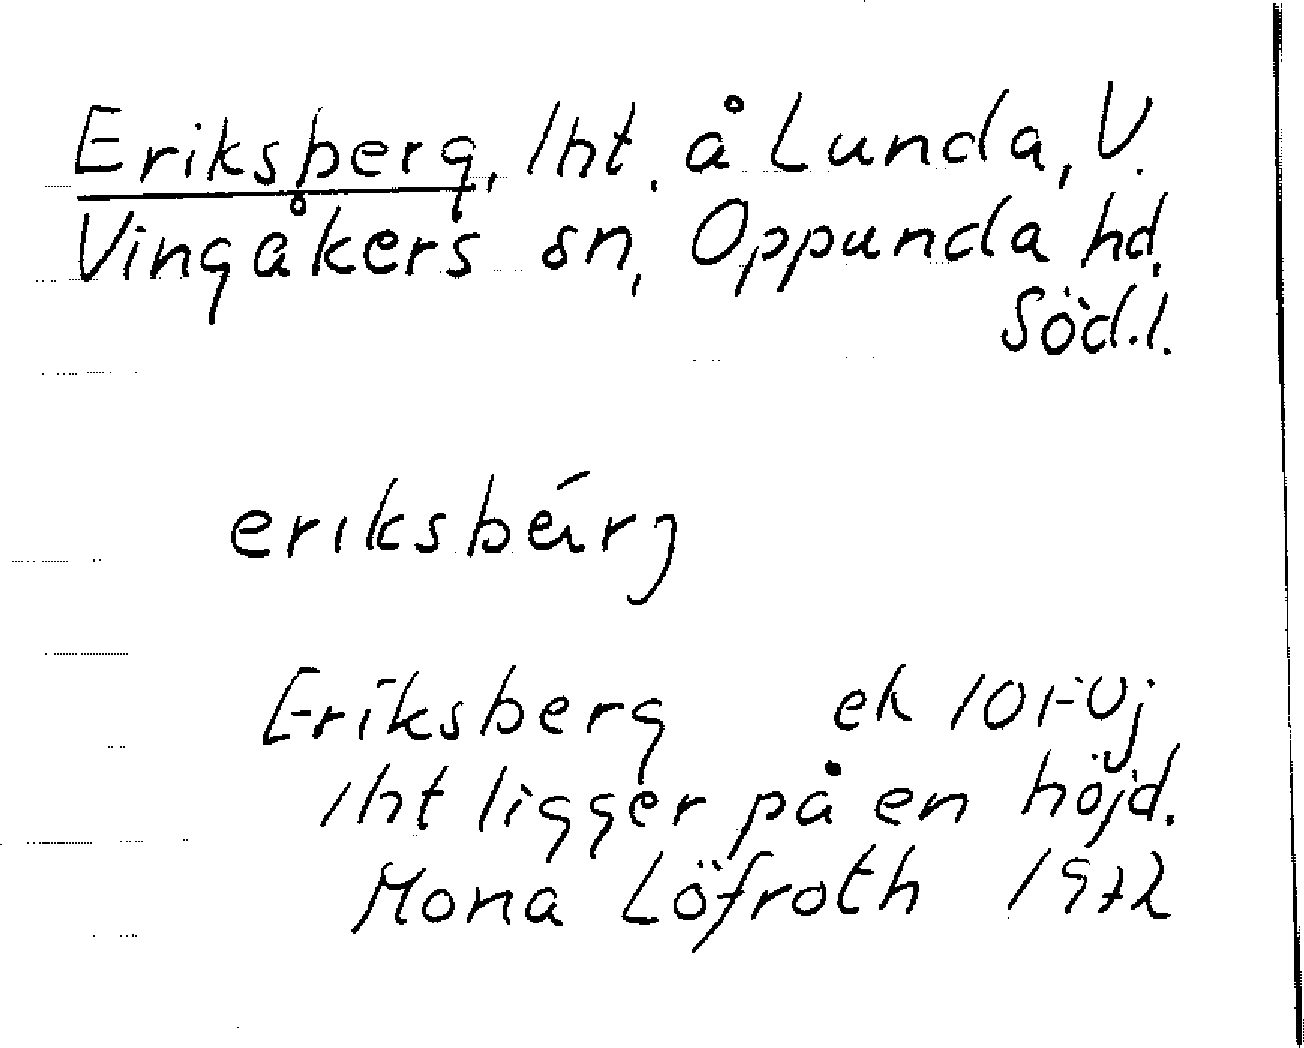 Eriksberg, lht. å Lunda, V.
Vingåkers sn, Oppunda hd,
Söd.l.
eriksbä́rj
Eriksberg ek 10 I-Öj
lht ligger på en höjd.
Mona Löfroth 1972